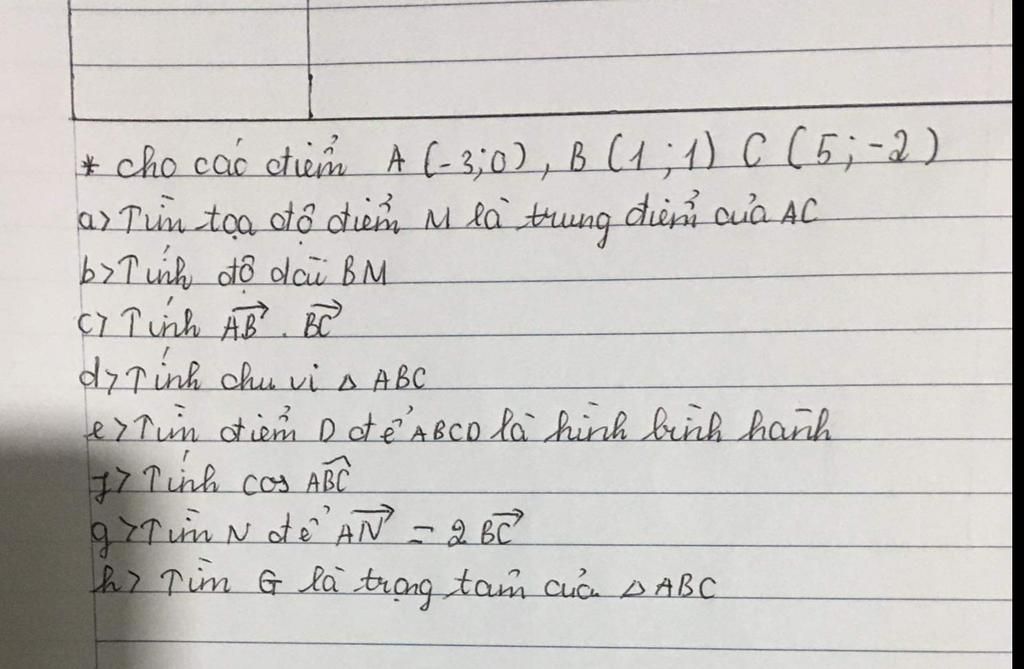 * cho các điểm A (-3;0), B (1;1) C (5;-2)
a> Tìm tọa độ điểm M là trung điểm của AC
b> Tính độ dài BM
c> Tính \overrightarrow{AB} . \overrightarrow{BC}
d> Tính chu vi △ ABC
e> Tìm điểm D để ABCD là hình bình hành
f> Tính cos \widehat{ABC}
g> Tìm N để \overrightarrow{AN} = 2 \overrightarrow{BC}
h> Tìm G là trọng tâm của △ ABC